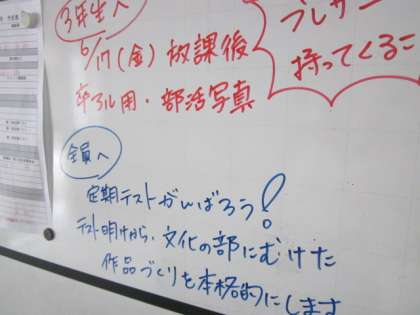 3年生へ
6/17(金) 放課後
卒アル用・部活写真
ブレザー
持ってくるこ
全員へ
定期テストがんばろう!
テスト明けから、文化の部にむけた
作品づくりを本格的にします